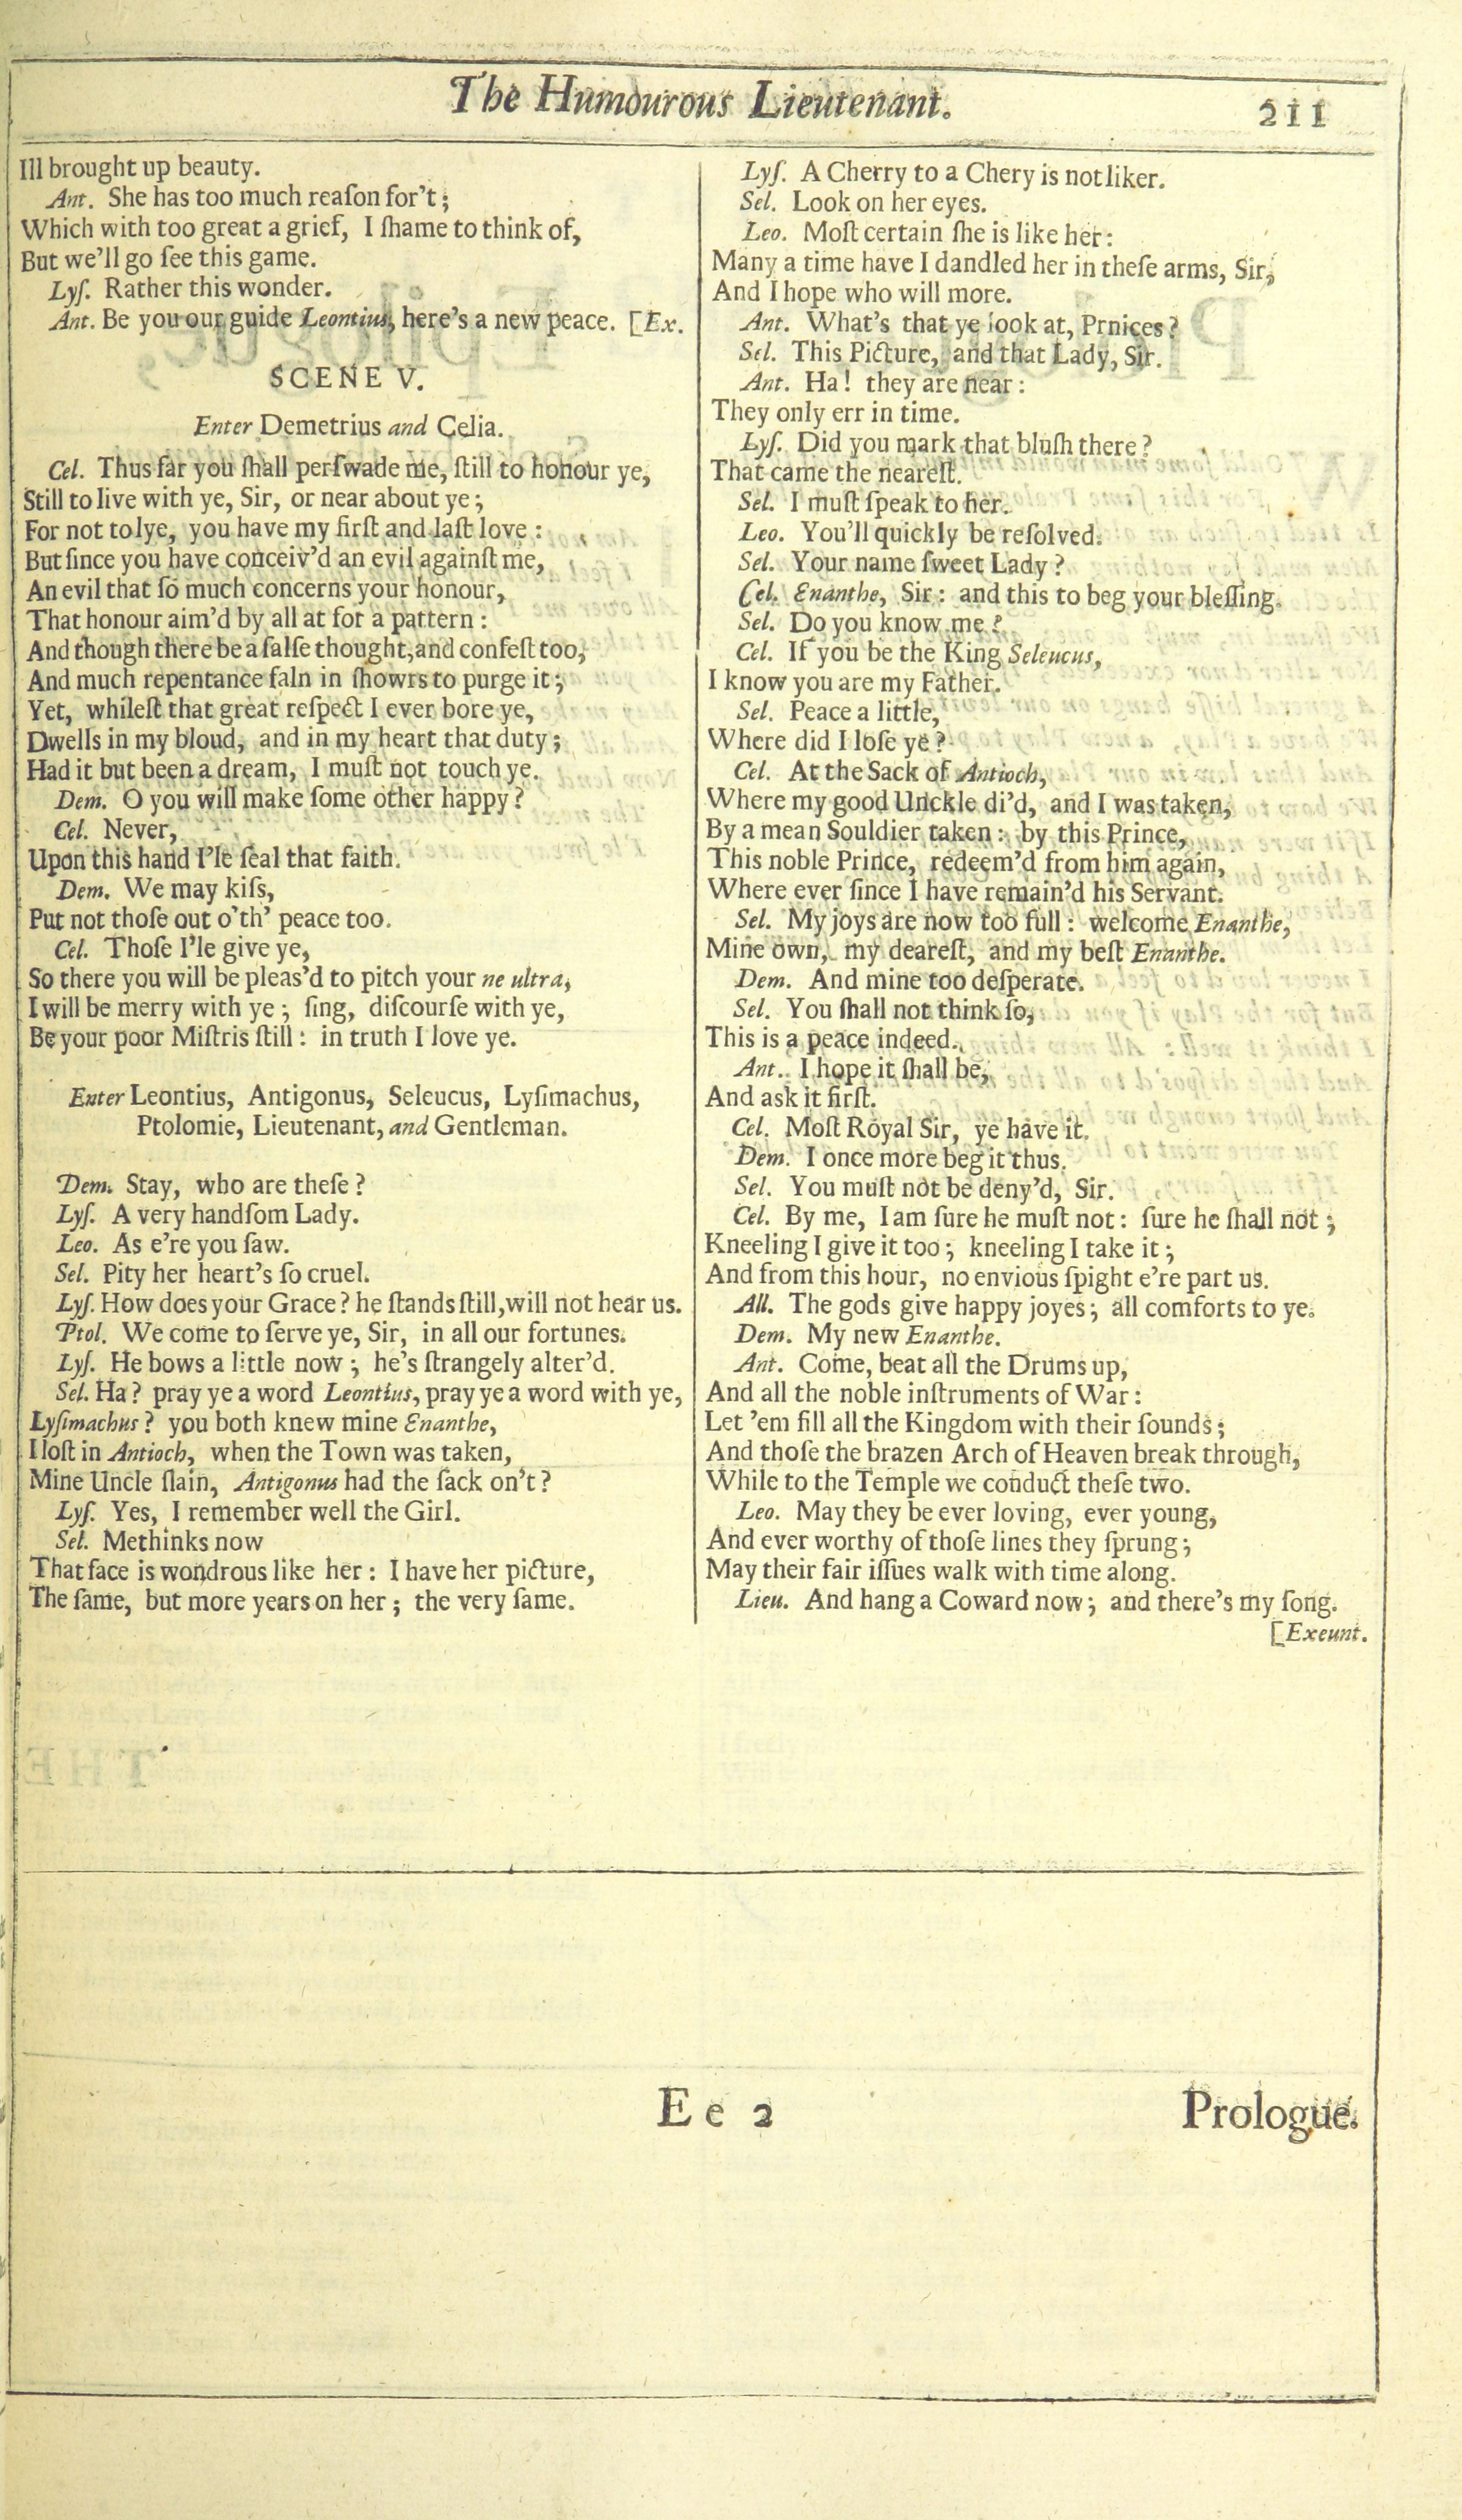 The Humourous Lieutenant.
211
Ill brought up beauty.
Ant. She has too much reaſon for't;
Which with too great a grief, I ſhame to think of,
But we'll go ſee this game.
Lyſ. Rather this wonder.
Ant. Be you our guide Leontius, here's a new peace. [Ex.
SCENE V.
Enter Demetrius and Celia.
Cel. Thus far you ſhall perſwade me, ſtill to honour ye,
Still to live with ye, Sir, or near about ye;
For not to lye, you have my firſt and laſt love:
But ſince you have conceiv'd an evil againſt me,
An evil that ſo much concerns your honour,
That honour aim'd by all at for a pattern:
And though there be a falſe thought, and confeſt too,
And much repentance faln in ſhowrs to purge it;
Yet, whileſt that great reſpect I ever bore ye,
Dwells in my bloud, and in my heart that duty;
Had it but been a dream, I muſt not touch ye.
Dem. O you will make ſome other happy?
Cel. Never,
Upon this hand I'le ſeal that faith.
Dem. We may kiſs,
Put not thoſe out o'th' peace too.
Cel. Thoſe I'le give ye,
So there you will be pleas'd to pitch your ne ultra,
I will be merry with ye; ſing, diſcourſe with ye,
Be your poor Miſtris ſtill: in truth I love ye.
Enter Leontius, Antigonus, Seleucus, Lyſimachus,
Ptolomie, Lieutenant, and Gentleman.
Dem. Stay, who are theſe?
Lyſ. A very handſom Lady.
Leo. As e're you ſaw.
Sel. Pity her heart's ſo cruel.
Lyſ. How does your Grace? he ſtands ſtill, will not hear us.
Ptol. We come to ſerve ye, Sir, in all our fortunes.
Lyſ. He bows a little now; he's ſtrangely alter'd.
Sel. Ha? pray ye a word Leontius, pray ye a word with ye,
Lyſimachus? you both knew mine Enanthe,
I loſt in Antioch, when the Town was taken,
Mine Uncle ſlain, Antigonus had the ſack on't?
Lyſ. Yes, I remember well the Girl.
Sel. Methinks now
That face is wondrous like her: I have her picture,
The ſame, but more years on her; the very ſame.
Lyſ. A Cherry to a Chery is not liker.
Sel. Look on her eyes.
Leo. Moſt certain ſhe is like her:
Many a time have I dandled her in theſe arms, Sir,
And I hope who will more.
Ant. What's that ye look at, Prnices?
Sel. This Picture, and that Lady, Sir.
Ant. Ha! they are near:
They only err in time.
Lyſ. Did you mark that bluſh there?
That came the neareſt.
Sel. I muſt ſpeak to her.
Leo. You'll quickly be reſolved.
Sel. Your name ſweet Lady?
Cel. Enanthe, Sir: and this to beg your bleſſing.
Sel. Do you know me?
Cel. If you be the King Seleucus,
I know you are my Father.
Sel. Peace a little,
Where did I loſe ye?
Cel. At the Sack of Antioch,
Where my good Unckle di'd, and I was taken,
By a mean Souldier taken: by this Prince,
This noble Prince, redeem'd from him again,
Where ever ſince I have remain'd his Servant.
Sel. My joys are now too full: welcome Enanthe,
Mine own, my deareſt, and my beſt Enanthe.
Dem. And mine too deſperate.
Sel. You ſhall not think ſo,
This is a peace indeed.
Ant. I hope it ſhall be,
And ask it firſt.
Cel. Moſt Royal Sir, ye have it.
Dem. I once more beg it thus.
Sel. You muſt not be deny'd, Sir.
Cel. By me, I am ſure he muſt not: ſure he ſhall not;
Kneeling I give it too; kneeling I take it;
And from this hour, no envious ſpight e're part us.
All. The gods give happy joyes; all comforts to ye.
Dem. My new Enanthe.
Ant. Come, beat all the Drums up,
And all the noble inſtruments of War:
Let 'em fill all the Kingdom with their ſounds;
And thoſe the brazen Arch of Heaven break through,
While to the Temple we conduct theſe two.
Leo. May they be ever loving, ever young,
And ever worthy of thoſe lines they ſprung;
May their fair iſſues walk with time along.
Lieu. And hang a Coward now; and there's my ſong.
[Exeunt.
E e 2
Prologue.